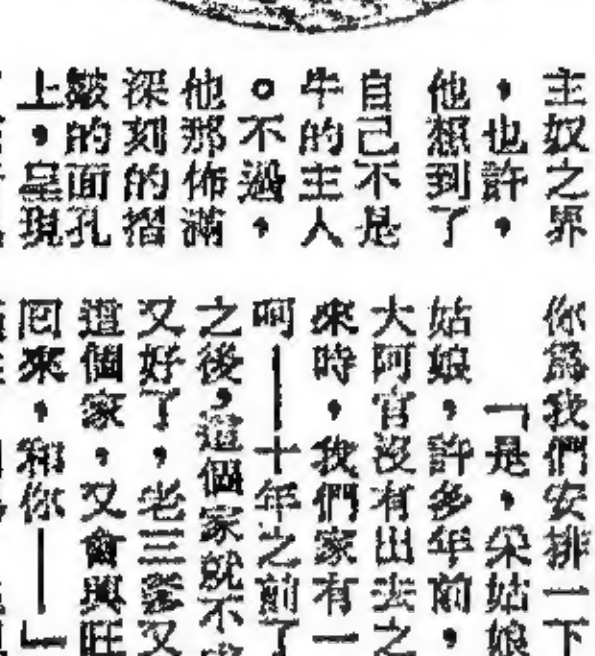 主奴之界
，也許，
他想到了
自己不是
牛的主人
。不過，
他那佈滿
深刻的摺
皺的面孔
上，呈現
你爲我們安排一下
「是，采姑娘
姑娘，許多年前，
大阿官沒有出去之
來時，我們家有一
呵——十年之前了
之後，這個家就不
又好了，老三又
這個家，又會興旺
囘來，和你——」